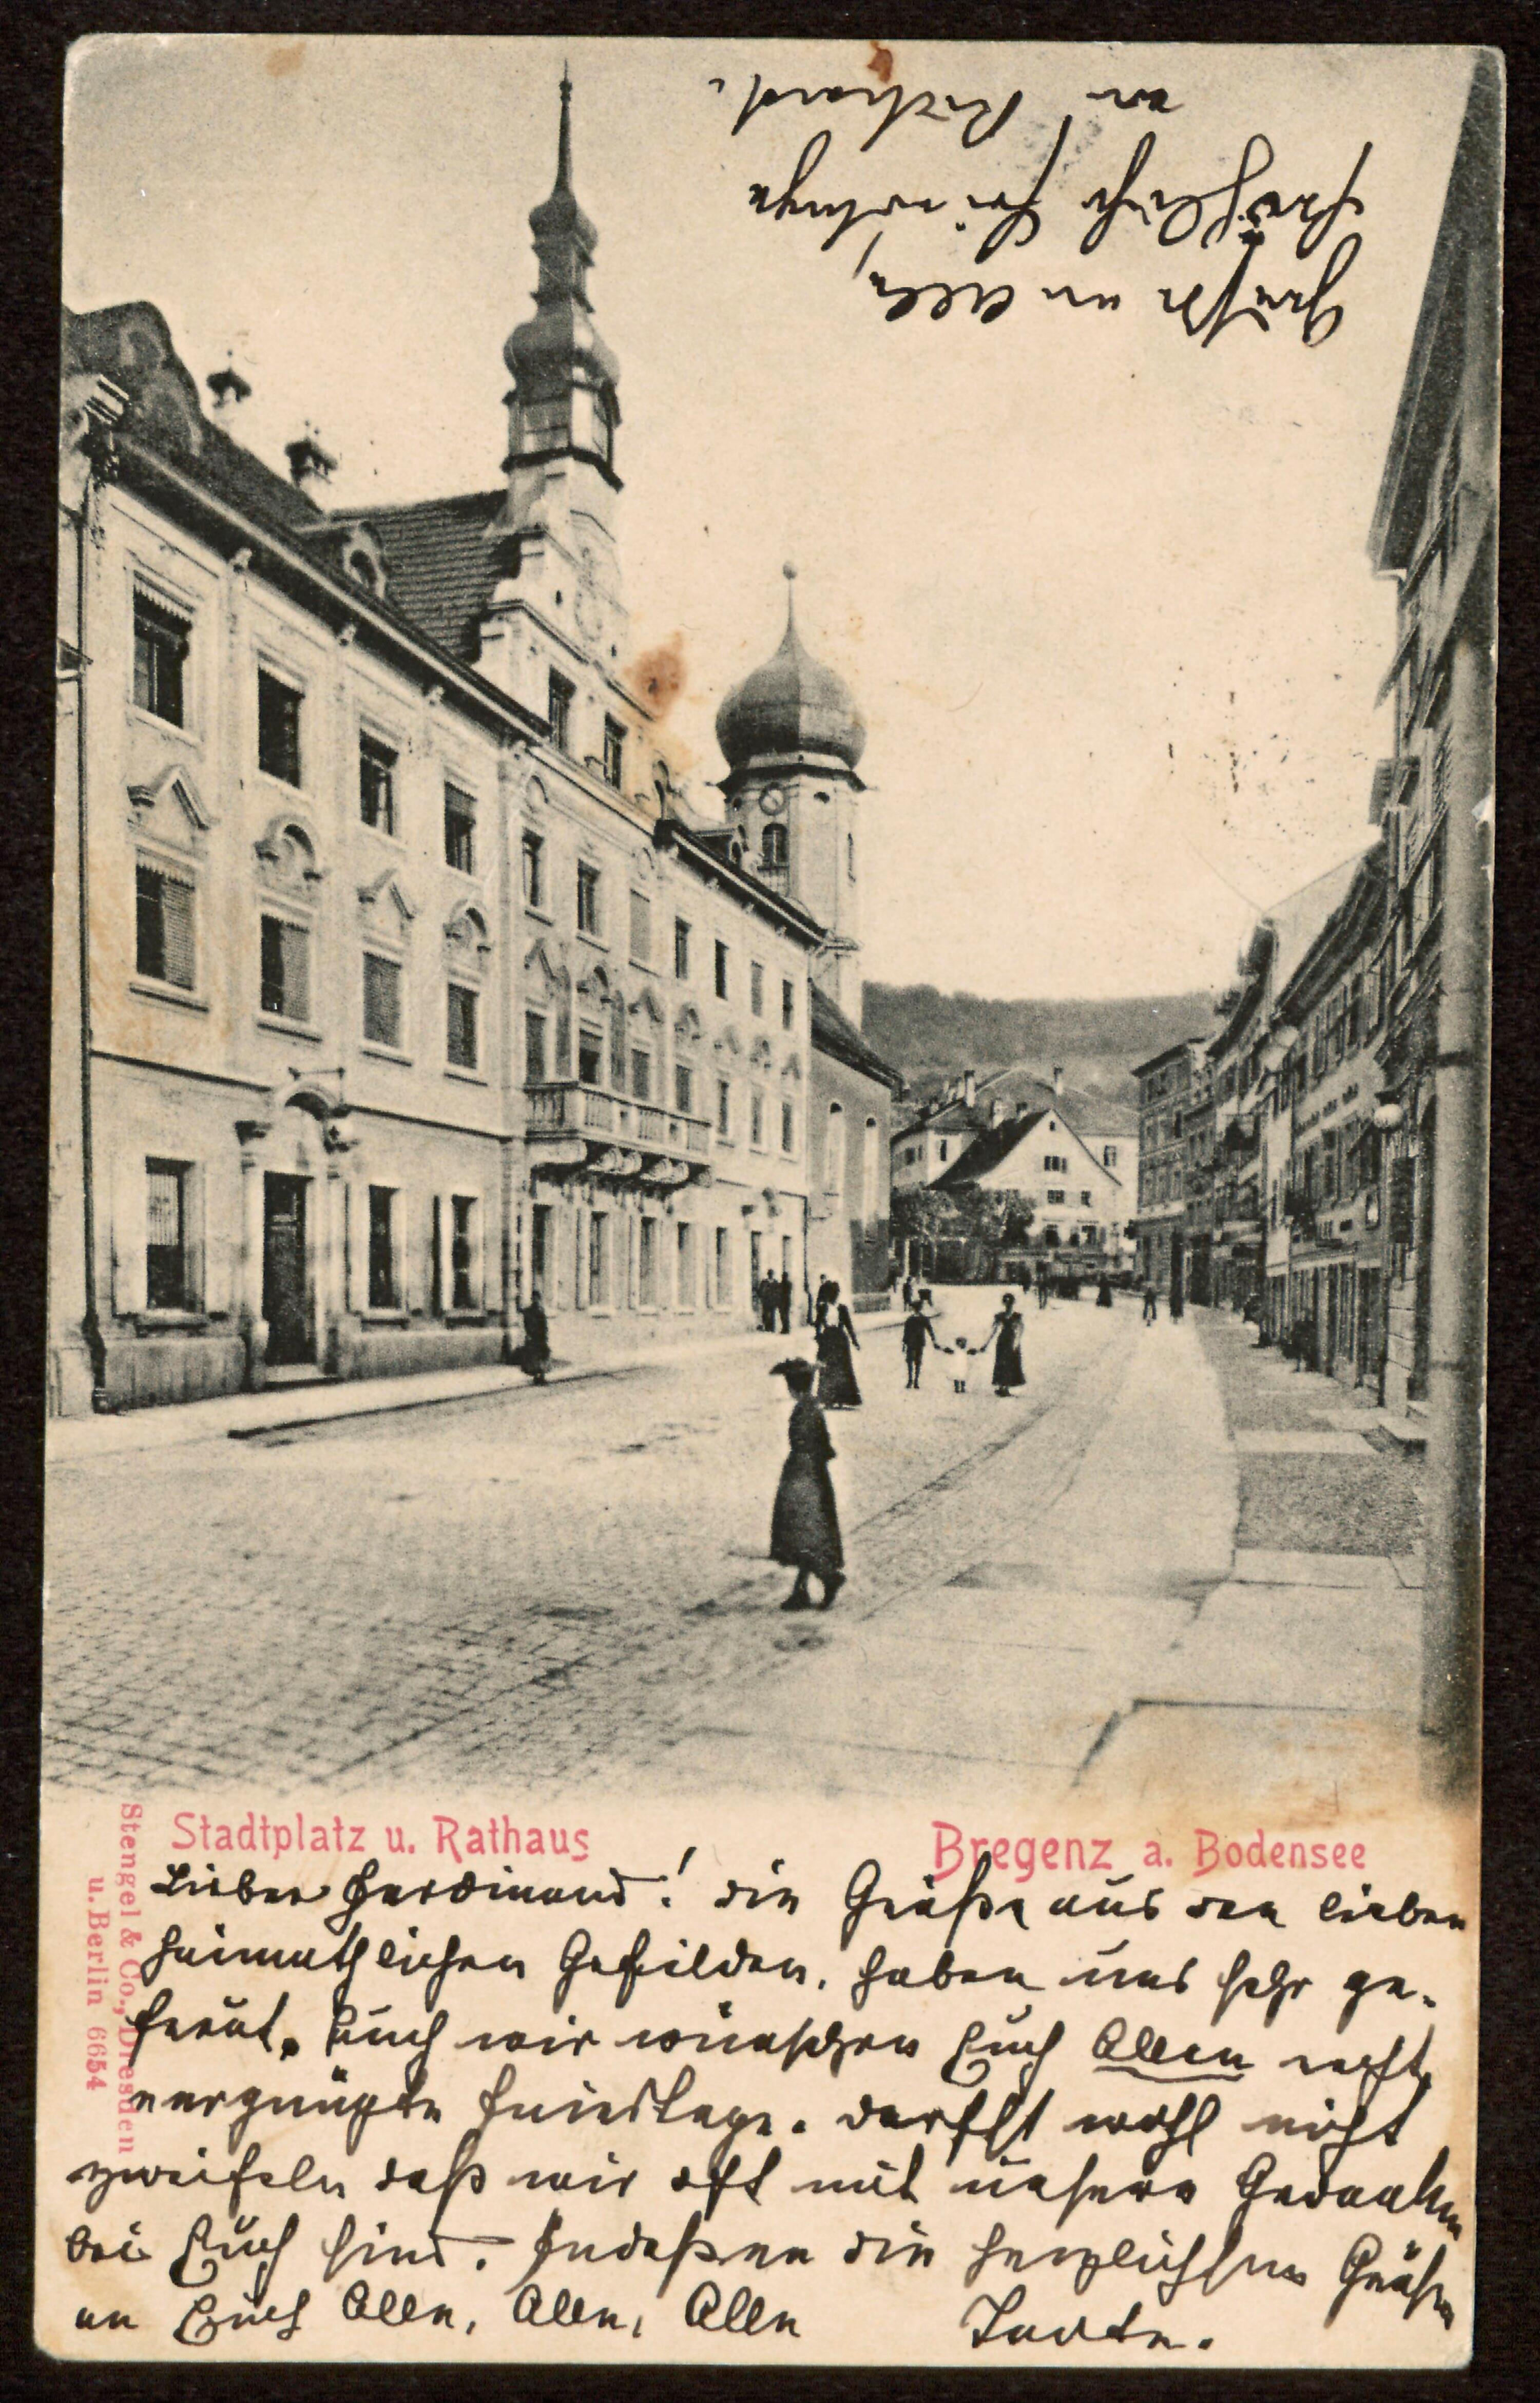 Grüße an Alle,
fröhliche Feiertage
von Richard.
Stadtplatz u. Rathaus
Bregenz a. Bodensee
Stengel & Co., Dresden
u. Berlin 6654
Lieber Ferdinand! die Grüße aus den lieben
heimathlichen Gefilden, haben uns sehr ge-
freut. Auch wir wünschen Euch Allen recht
vergnügte Feiertage. Darfst wohl nicht
zweifeln daß wir oft mit unsern Gedanken
bei Euch sind. Indeßen die herzlichsten Grüße
an Euch Alle, Alle, Alle Tante.